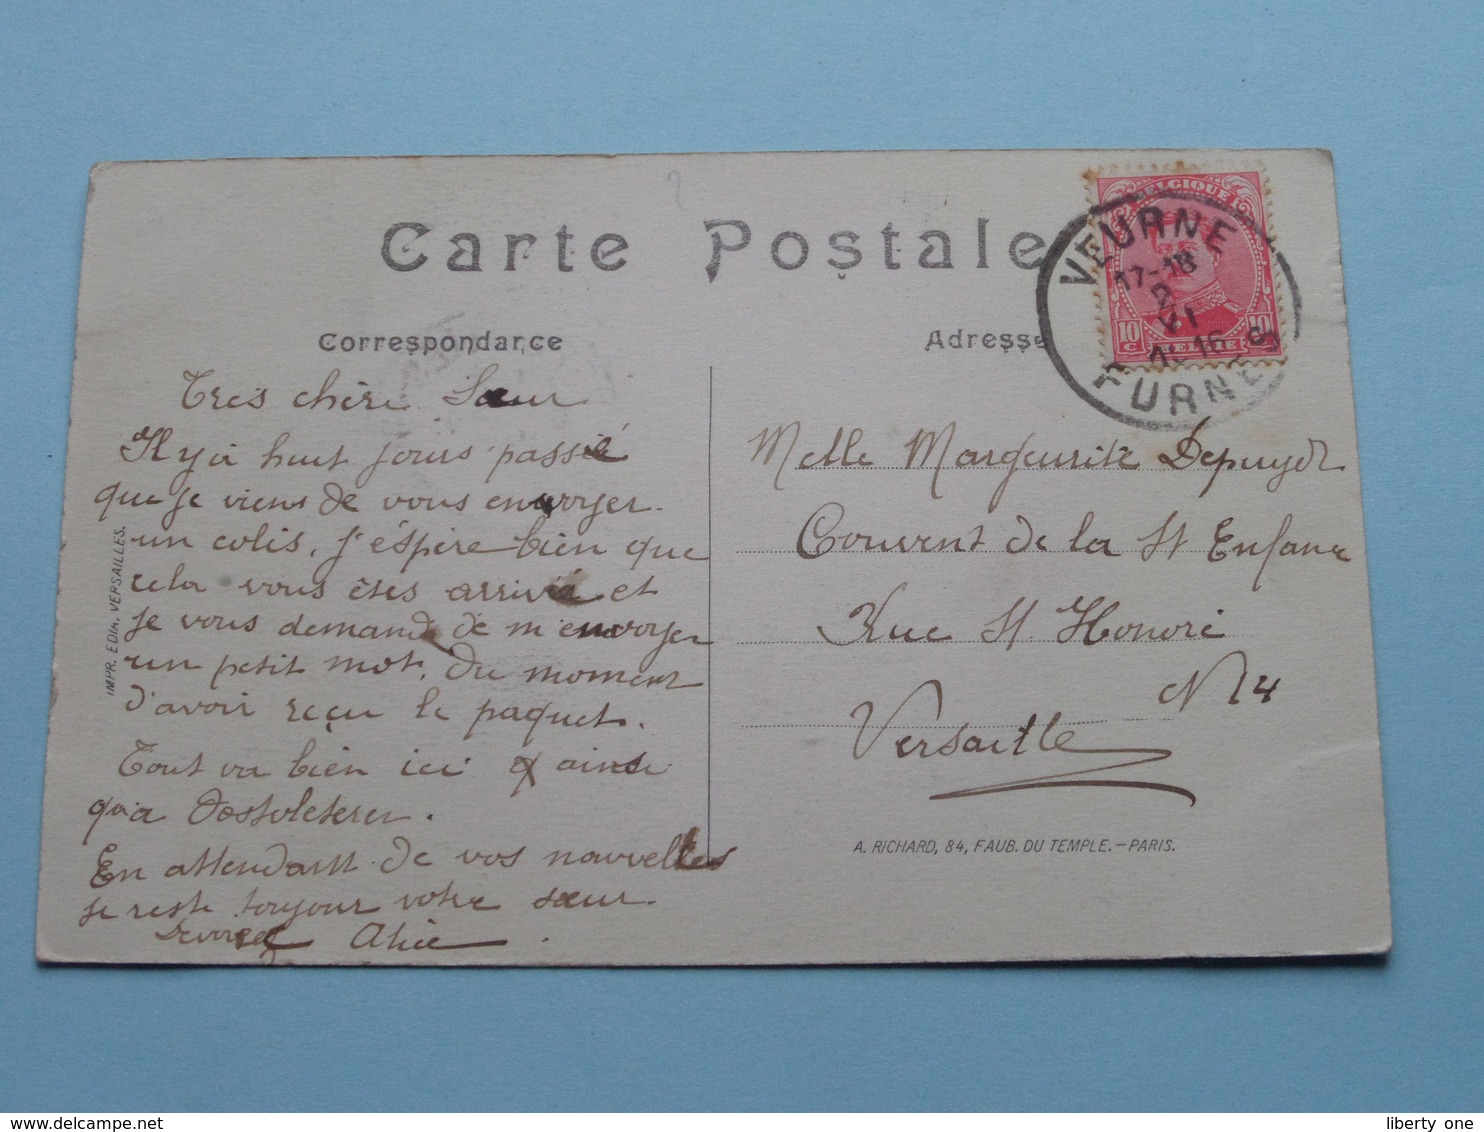 Carte Postale
Correspondance
Adresse
BELGIQUE
10 C
10 C
BELGIE
VEURNE
17-18
2
VI
FURNES
Tres chère Sœur
Il y a huit jours passé
que je viens de vous envoyer
un colis, j'éspère bien que
cela vous êtes arrivé et
je vous demande de m'envoyer
un petit mot, du moment
d'avoir reçu le paquet.
Tout va bien ici et ainsi
qu'a
En attendant de vos nouvelles
je reste toujour votre sœur
Alice
Melle Marguerite Depuydt
Couvent de la St Enfance
Rue St. Honoré
N 14
Versaille
IMPR. EDIA, VERSAILLES.
A. RICHARD, 84, FAUB. DU TEMPLE.—PARIS.
liberty one